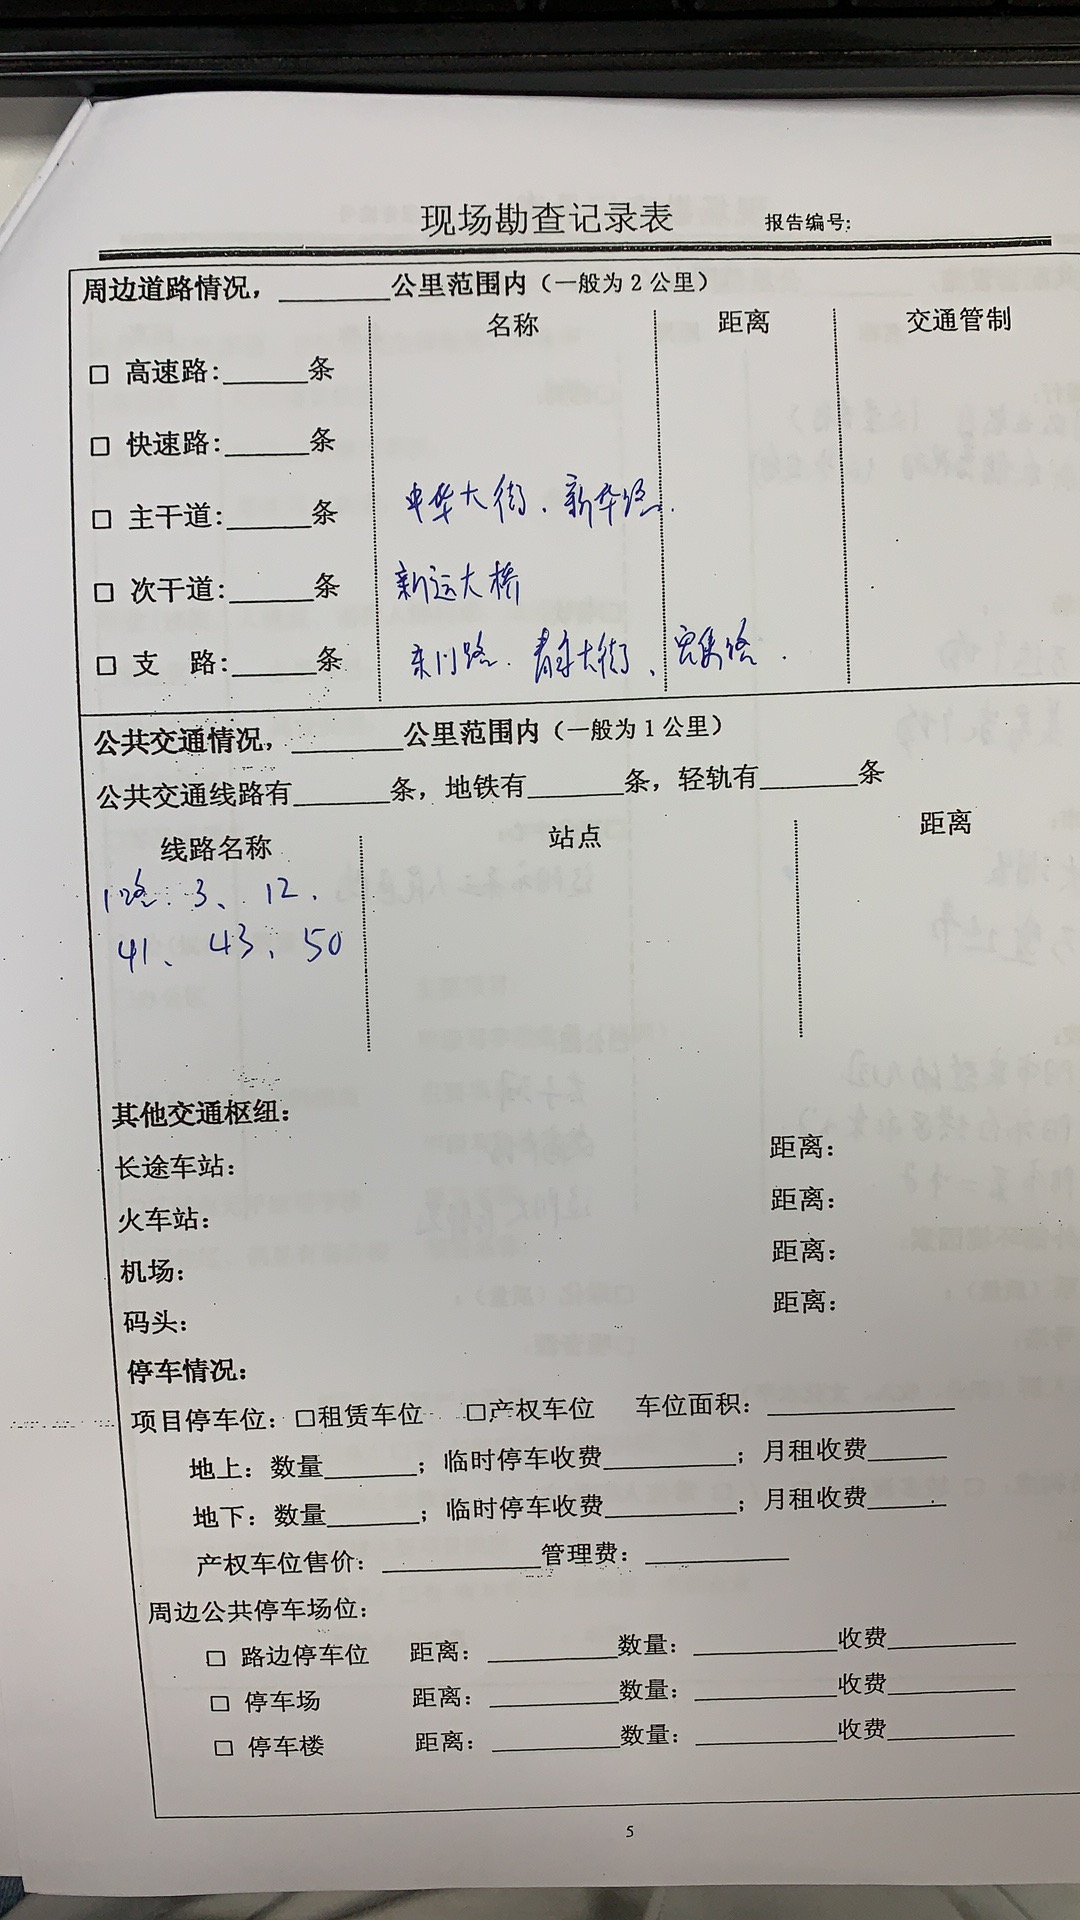 现场勘查记录表 报告编号:
周边道路情况，________公里范围内（一般为2公里）
名称 距离 交通管制
□ 高速路:______条
□ 快速路:______条
□ 主干道:______条 中华大街、新华路.
□ 次干道:______条 新运大桥
□ 支 路:______条 东门路、青年大街、
公共交通情况，________公里范围内（一般为1公里）
公共交通线路有_______条，地铁有_______条，轻轨有_______条
线路名称 站点 距离
1路、3、12、
41、43、50
其他交通枢纽：
长途车站： 距离：
火车站： 距离：
机场： 距离：
码头： 距离：
停车情况：
项目停车位：□租赁车位 □产权车位 车位面积：______________
地上：数量_______；临时停车收费__________；月租收费______
地下：数量_______；临时停车收费__________；月租收费______
产权车位售价：____________管理费：___________
周边公共停车场位：
□ 路边停车位 距离：__________数量：___________收费__________
□ 停车场 距离：__________数量：___________收费__________
□ 停车楼 距离：__________数量：___________收费__________
5